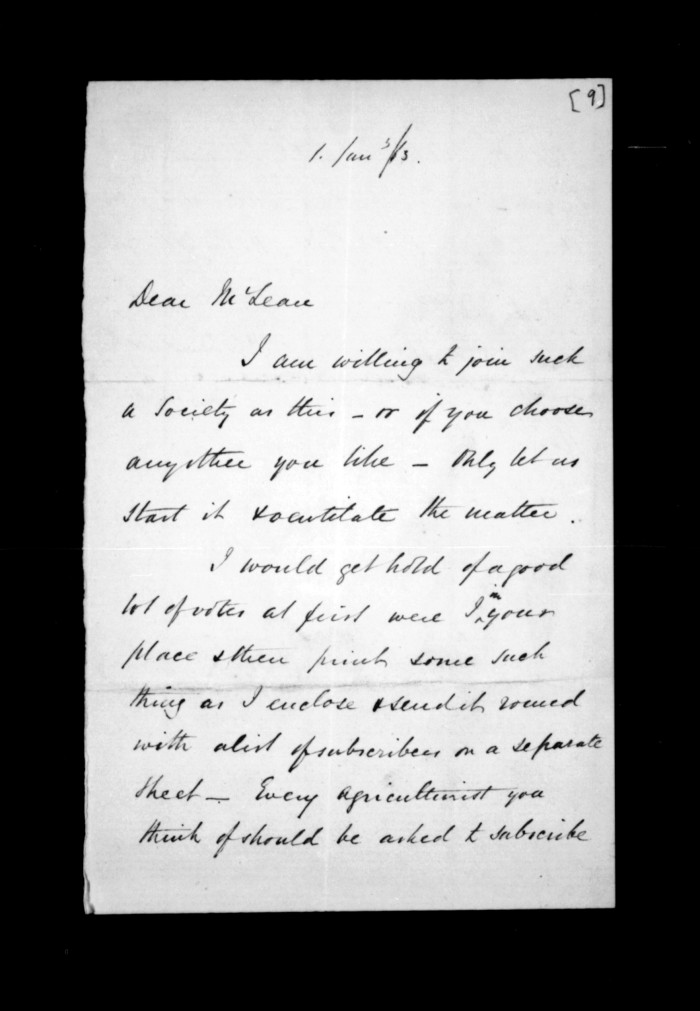 [9]
1. Jany /63.
Dear McLean
I am willing to join such
a Society as this – or if you choose
anyother you like – Only let us
start it & ventilate the matter.
I would get hold of a good
lot of votes at first were I in your
place & then print some such
thing as I enclose & send it round
with a list of subscribers on a separate
sheet – Every agriculturist you
think of should be asked to subscribe